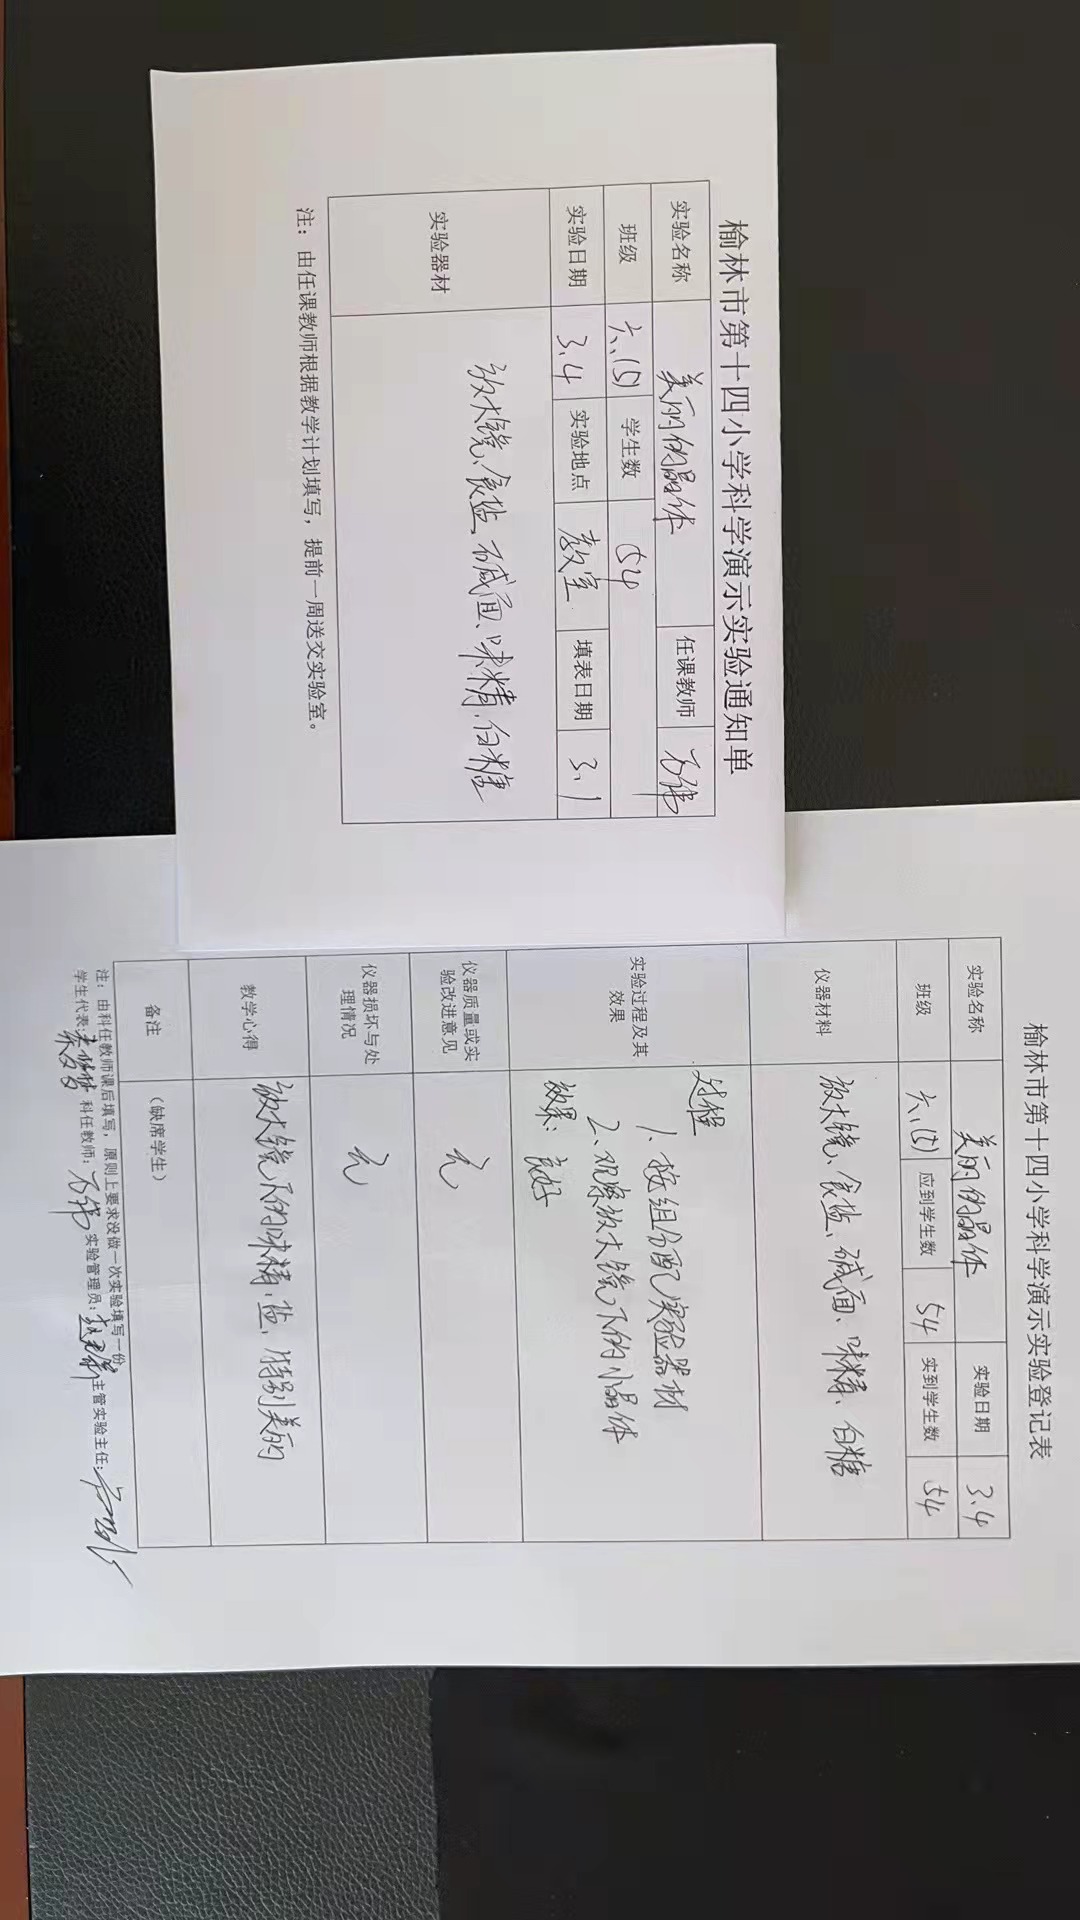 榆林市第十四小学科学演示实验通知单
实验名称 美丽的晶体 任课教师
班级 六.(5) 学生数 54
实验日期 3.4 实验地点 教室 填表日期 3.1
实验器材 放大镜、食盐、碱面、味精、白糖
注：由任课教师根据教学计划填写，提前一周送交实验室。
榆林市第十四小学科学演示实验登记表
实验名称 美丽的晶体 实验日期 3.4
班级 六.(5) 应到学生数 54 实到学生数 54
仪器材料 放大镜、食盐、碱面、味精、白糖
实验过程及其
效果
过程
1、按组分配实验器材
2、观察放大镜下的小晶体
效果：良好
仪器质量或实
验改进意见
无
仪器损坏与处
理情况
无
教学心得 放大镜下的味精、盐、特别美丽
备注 （缺席学生）
注：由科任教师课后填写，原则上要求没做一次实验填写一份
学生代表： 科任教师： 实验管理员： 主管实验主任：